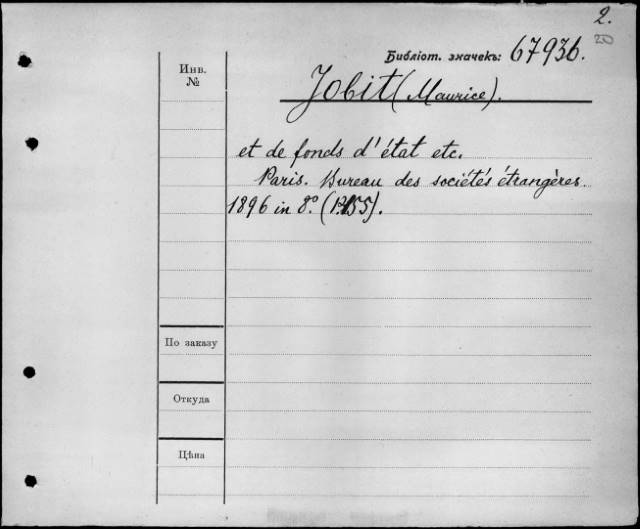 2.
20
Библіот. значекъ: 67936.
Инв.
№
Jobit (Maurice).
et de fonds d'état etc.
Paris. Bureau des sociétés étrangères.
1896 in 8.º
По заказу
Откуда
Цѣна